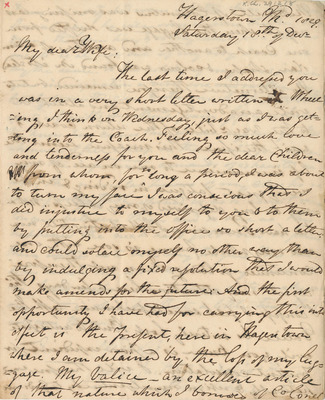 Hagerstown Md. 1829
Saturday 18th Decr
My dear Wife:
The last time I addressed you
was in a very short letter written Wheel
=ing I think on Wednesday, just as I was get
=ting into the Coach. Feeling so much love
and tenderness for you and the dear Children
from whom, for so long a period, I was about
to turn my face I was conscious that I
did injustice to myself to you & to them
by putting into the office so short a letter
and could solace myself no other way than
by indulging a fixed resolution that I would
make amends for the future. And the first
opportunity I have had for carrying this into
effect is the present, here in Hagerstown
where I am detained by the loss of my lug
=gage. My valice - an excellent article
of that nature which I borrowed of Colonel